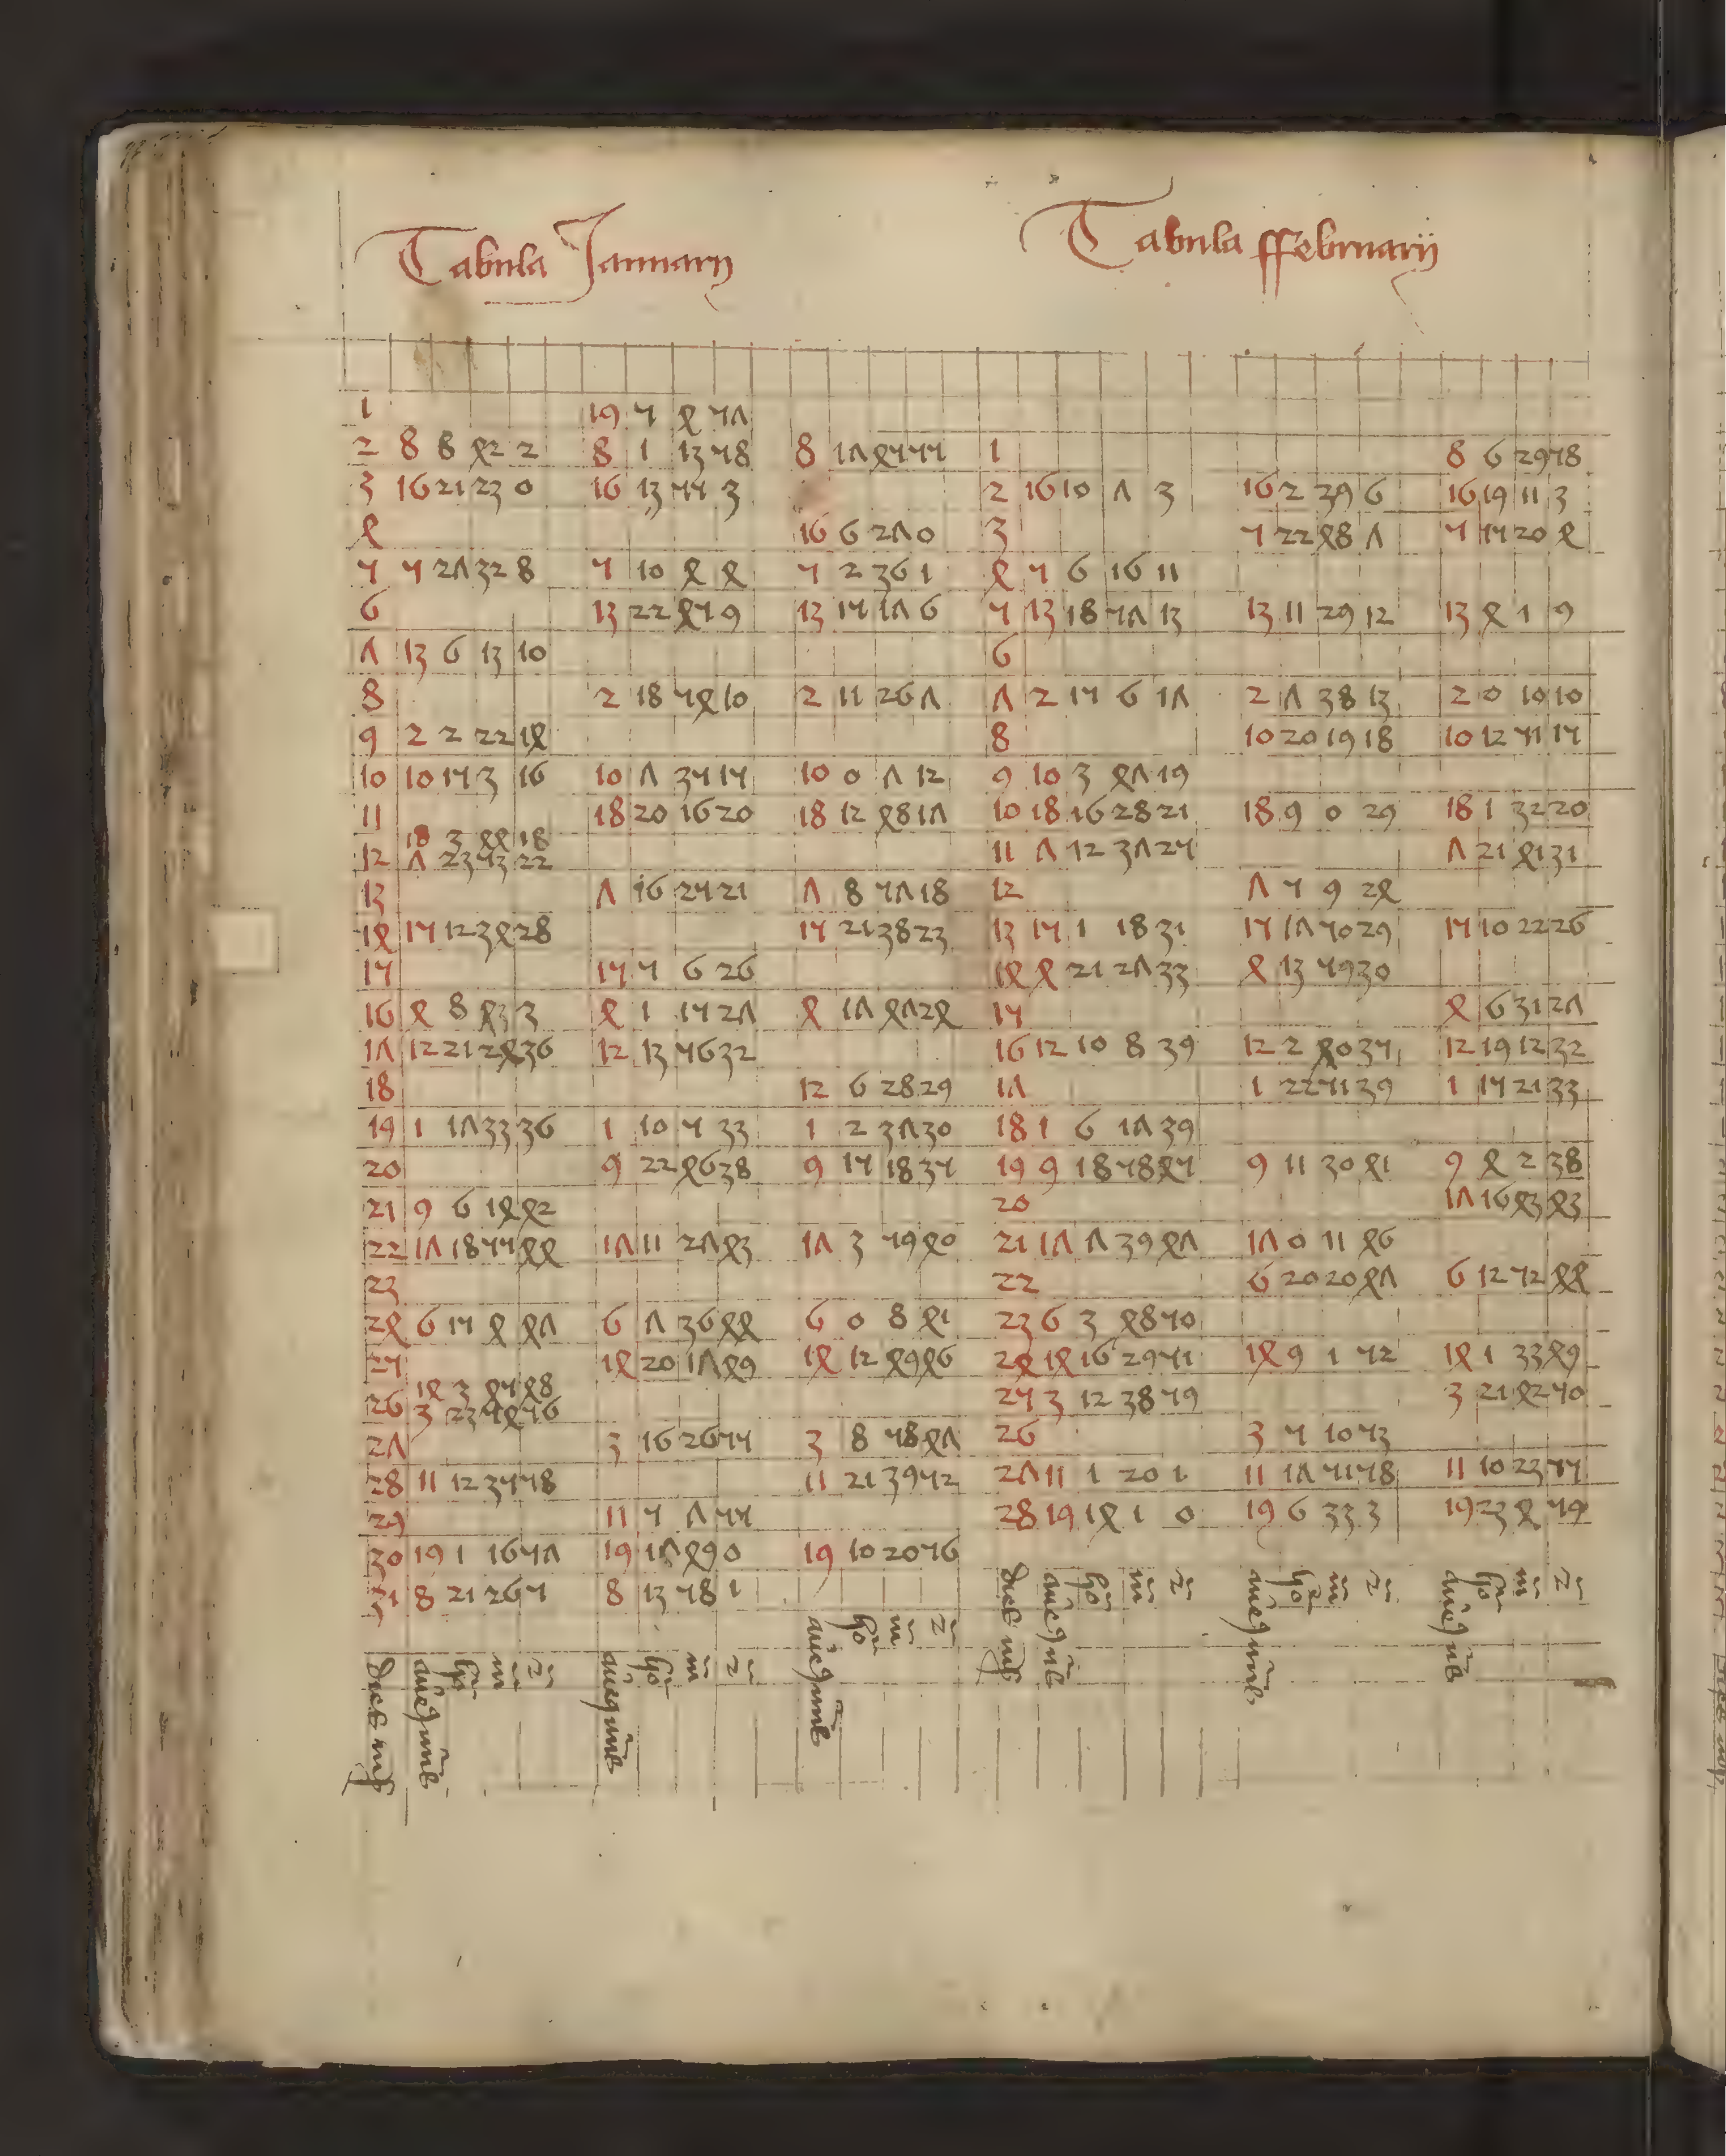 Tabula Januarij
1 19 5 4 57
2 8 8 42 2 8 1 13 58 8 17 45 55
3 16 21 23 0 16 13 55 3
4 16 6 27 0
5 5 27 32 8 5 10 4 4 5 2 36 1
6 13 22 45 9 13 15 17 6
7 13 6 13 10
8 2 18 54 10 2 11 26 7
9 2 2 22 14
10 10 15 3 16 10 7 35 15 10 0 7 12
11 18 20 16 20 18 12 48 17
18 3 44 18
12 7 23 53 22
13 7 16 25 21 7 8 57 18
14 15 12 34 28 15 21 38 23
15 15 5 6 26
16 4 8 43 3 4 1 15 27 4 17 47 24
17 12 21 24 36 12 13 56 32
18 12 6 28 29
19 1 17 33 36 1 10 5 33 1 2 37 30
20 9 22 46 38 9 15 18 35
21 9 6 14 42
22 17 18 55 44 17 11 27 43 17 3 59 40
23
24 6 15 4 47 6 7 36 44 6 0 8 41
25 14 20 17 49 14 12 49 46
14 3 45 48
26 3 23 54 56
27 3 16 26 55 3 8 58 47
28 11 12 35 58 11 21 39 52
29 11 5 7 55
30 19 1 16 57 19 17 49 0 19 10 20 56
31 8 21 26 5 8 13 58 1
Tabula ffebruarij
1 8 6 29 58
2 16 10 7 3 16 2 39 6 16 19 11 3
3 5 22 48 7 5 15 20 4
4 5 6 16 11
5 13 18 57 13 13 11 29 12 13 4 1 9
6
7 2 15 6 17 2 7 38 13 2 0 10 10
8 10 20 19 18 10 12 51 15
9 10 3 47 19
10 18 16 28 21 18 9 0 29 18 1 32 20
11 7 12 37 25 7 21 41 31
12 7 5 9 24
13 15 1 18 31 15 17 50 29 15 10 22 26
14 4 21 27 33 4 13 59 30
15 4 6 31 27
16 12 10 8 39 12 2 40 35 12 19 12 32
17 1 22 51 39 1 15 21 33
18 1 6 17 39
19 9 18 58 45 9 11 30 41 9 4 2 38
20 17 16 43 43
21 17 7 39 47 17 0 11 46
22 6 20 20 47 6 12 52 44
23 6 3 48 50
24 14 16 29 51 14 9 1 52 14 1 33 49
25 3 12 38 59 3 21 42 50
26 3 5 10 53
27 11 1 20 1 11 17 51 58 11 10 23 55
28 19 14 1 0 19 6 33 3 19 23 4 59